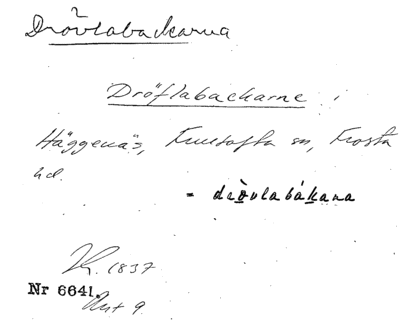 2
Drövlabackarna
Dröflabackarne i
Häggenäs, Fulltofta sn, Frosta
hd.
= drövlabákana
K. 1837
Nr 6641.
Akt 9